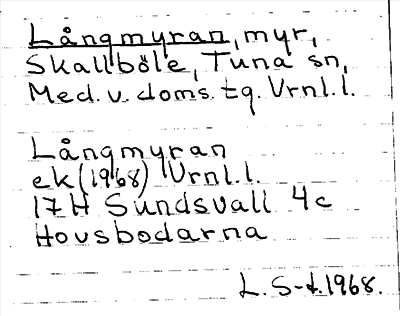 Långmyran, myr,
Skallböle, Tuna sn,
Med. v. doms. tg. Vrnl. l.
Långmyran
ek (1968) Vrnl. l.
17H Sundsvall 4c
Hovsbodarna
L. S-t. 1968.